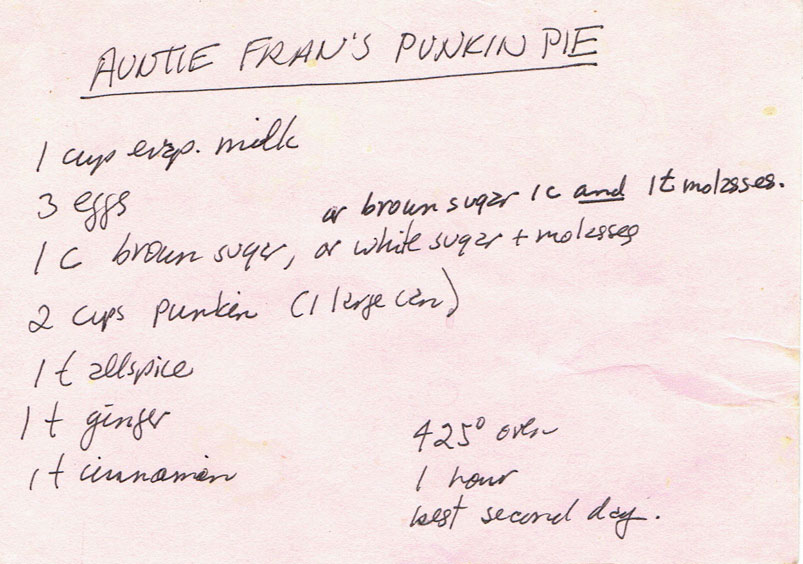 AUNTIE FRAN'S PUNKIN PIE
1 cup evap. milk
3 eggs
or brown sugar 1c and 1t molasses.
1 c brown sugar, or white sugar + molasses
2 cups punkin (1 large can)
1 t allspice
1 t ginger
1t cinnamon
425° oven
1 hour
best second day.